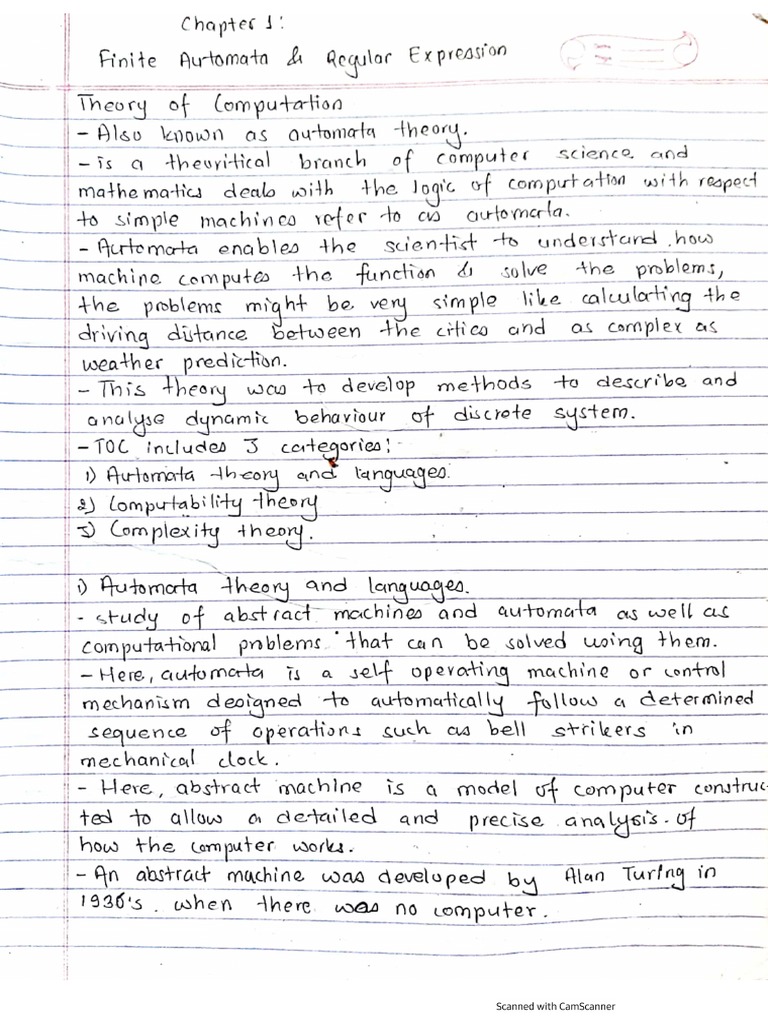 Chapter 1:
Finite Automata & Regular Expression
Theory of Computation
- Also known as automata theory.
- is a theoritical branch of computer science and
mathematics deals with the logic of computation with respect
to simple machines refer to as automata.
- Automata enables the scientist to understand how
machine computes the function & solve the problems,
the problems might be very simple like calculating the
driving distance between the cities and as complex as
weather prediction.
- This theory was to develop methods to describe and
analyse dynamic behaviour of discrete system.
- TOC includes 3 categories:
1) Automata theory and languages.
2) Computability theory
3) Complexity theory.
1) Automata theory and languages.
- study of abstract machines and automata as well as
computational problems that can be solved using them.
- Here, automata is a self operating machine or control
mechanism designed to automatically follow a determined
sequence of operations such as bell strikers in
mechanical clock.
- Here, abstract machine is a model of computer construc-
ted to allow a detailed and precise analysis of
how the computer works.
- An abstract machine was developed by Alan Turing in
1936's when there was no computer.
Scanned with CamScanner